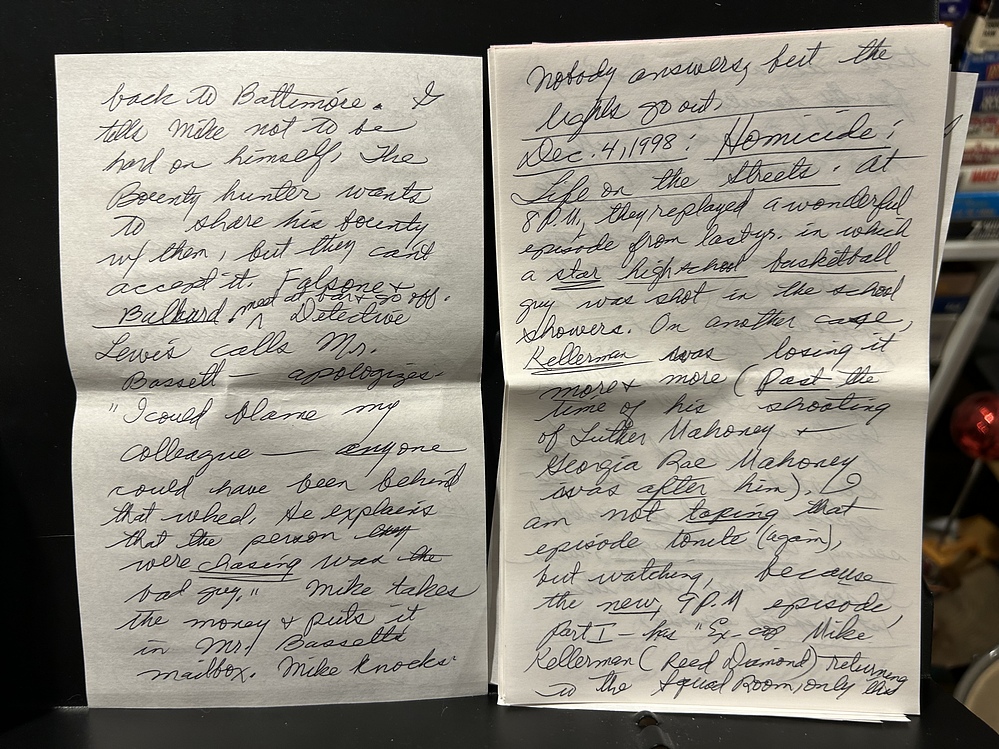 back to Baltimore. G
tells Mike not to be
hard on himself. The
Bounty hunter wants
to share his bounty
w/ them, but they can't
accept it. Falsone &
Ballard meet at bar & go off.
Detective
Lewis calls Mr.
Bassett — apologizes.
"I could blame my
colleague — anyone
could have been behind
that wheel. He explains
that the person they
were chasing was the
bad guy." Mike takes
the money & puts it
in Mr. Bassett's
mailbox. Mike Knocks.
Nobody answers, but the
lights go out.
Dec. 4, 1998: Homicide:
Life on the Streets. At
8 P.M, they replayed a wonderful
episode from last yr. in which
a star high school basketball
guy was shot in the school
showers. On another case,
Kellerman was losing it
more & more (Past the
time of his shooting
of Luther Mahoney &
Georgia Rae Mahoney
was after him). I
am not taping that
episode tonite (again),
but watching, because
the new, 9 P.M episode,
part I - has "Ex-cop Mike
Kellerman (Reed Diamond) returning
to the Squad Room, only this